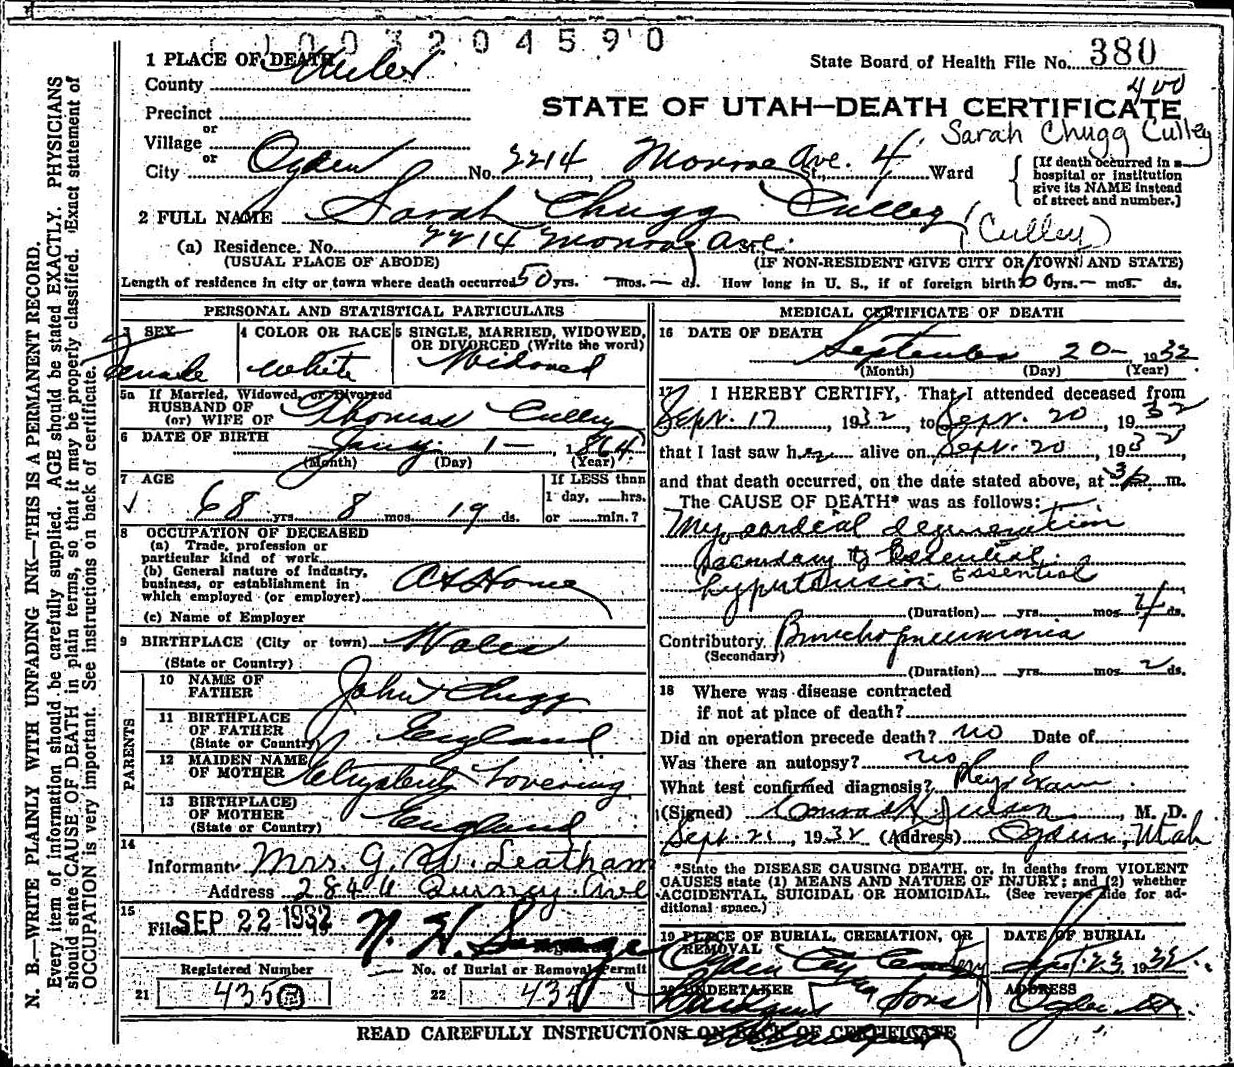 1003204590
1 PLACE OF DEATH
State Board of Health File No. 380
County Weber
400
STATE OF UTAH—DEATH CERTIFICATE
Precinct
or
Village
Sarah Chugg Culley
or
City Ogden No. 2214, Monroe Ave. St., 4 Ward
[If death occurred in a hospital or institution give its NAME instead of street and number.]
2 FULL NAME Sarah Chugg Culley
(Culley)
(a) Residence. No. 2214 Monroe Ave. St.
(USUAL PLACE OF ABODE) (IF NON-RESIDENT GIVE CITY OR TOWN AND STATE)
Length of residence in city or town where death occurred 50 yrs. — mos. — ds. How long in U. S., if of foreign birth 60 yrs. — mos. ds.
PERSONAL AND STATISTICAL PARTICULARS
3 SEX
Female
4 COLOR OR RACE
White
5 SINGLE, MARRIED, WIDOWED, OR DIVORCED (Write the word)
Widowed
5a If Married, Widowed, or Divorced
HUSBAND OF
(or) WIFE OF Thomas Culley
6 DATE OF BIRTH Jany. 1 — 1864
(Month) (Day) (Year)
7 AGE
68 yrs 8 mos. 19 ds.
If LESS than
1 day, hrs.
or min.?
8 OCCUPATION OF DECEASED
(a) Trade, profession or
particular kind of work
(b) General nature of industry,
business, or establishment in
which employed (or employer) At Home
(c) Name of Employer
9 BIRTHPLACE (City or town) Wales
(State or Country)
PARENTS
10 NAME OF
FATHER John Chugg
11 BIRTHPLACE
OF FATHER England
(State or Country)
12 MAIDEN NAME
OF MOTHER Elizabeth Lovering
13 BIRTHPLACE
OF MOTHER England
(State or Country)
14
Informant Mrs. G. W. Leatham
Address Ave
15
Filed SEP 22 1932
Registered Number No. of Burial or Removal Permit
21 435 22 435
MEDICAL CERTIFICATE OF DEATH
16 DATE OF DEATH
September 20 — 1932
(Month) (Day) (Year)
17 I HEREBY CERTIFY, That I attended deceased from
Sept. 17, 1932, to Sept. 20, 1932
that I last saw her alive on Sept. 20, 1932,
and that death occurred, on the date stated above, at 3 p m.
The CAUSE OF DEATH* was as follows:
Myocardial degeneration
secondary to Essential
hypertension Essential
(Duration) yrs. mos. 4 ds.
Contributory Bronchopneumonia
(Secondary)
(Duration) yrs. mos. 2 ds.
18 Where was disease contracted
if not at place of death?
Did an operation precede death? no Date of
Was there an autopsy? no
What test confirmed diagnosis? Phys Exam
(Signed) Conrad H Jensen, M. D.
Sept. 21, 1932 (Address) Ogden, Utah
*State the DISEASE CAUSING DEATH, or, in deaths from VIOLENT
CAUSES state (1) MEANS AND NATURE OF INJURY; and (2) whether
ACCIDENTAL, SUICIDAL OR HOMICIDAL. (See reverse side for ad-
ditional space.)
19 PLACE OF BURIAL, CREMATION, OR
REMOVAL
Ogden City Cemetery
DATE OF BURIAL
Sept. 23, 1932
20 UNDERTAKER
Sons
ADDRESS
Ogden
READ CAREFULLY INSTRUCTIONS ON BACK OF CERTIFICATE
N. B.—WRITE PLAINLY WITH UNFADING INK—THIS IS A PERMANENT RECORD.
Every item of information should be carefully supplied. AGE should be stated EXACTLY. PHYSICIANS
should state CAUSE OF DEATH in plain terms, so that it may be properly classified. Exact statement of
OCCUPATION is very important. See instructions on back of certificate.